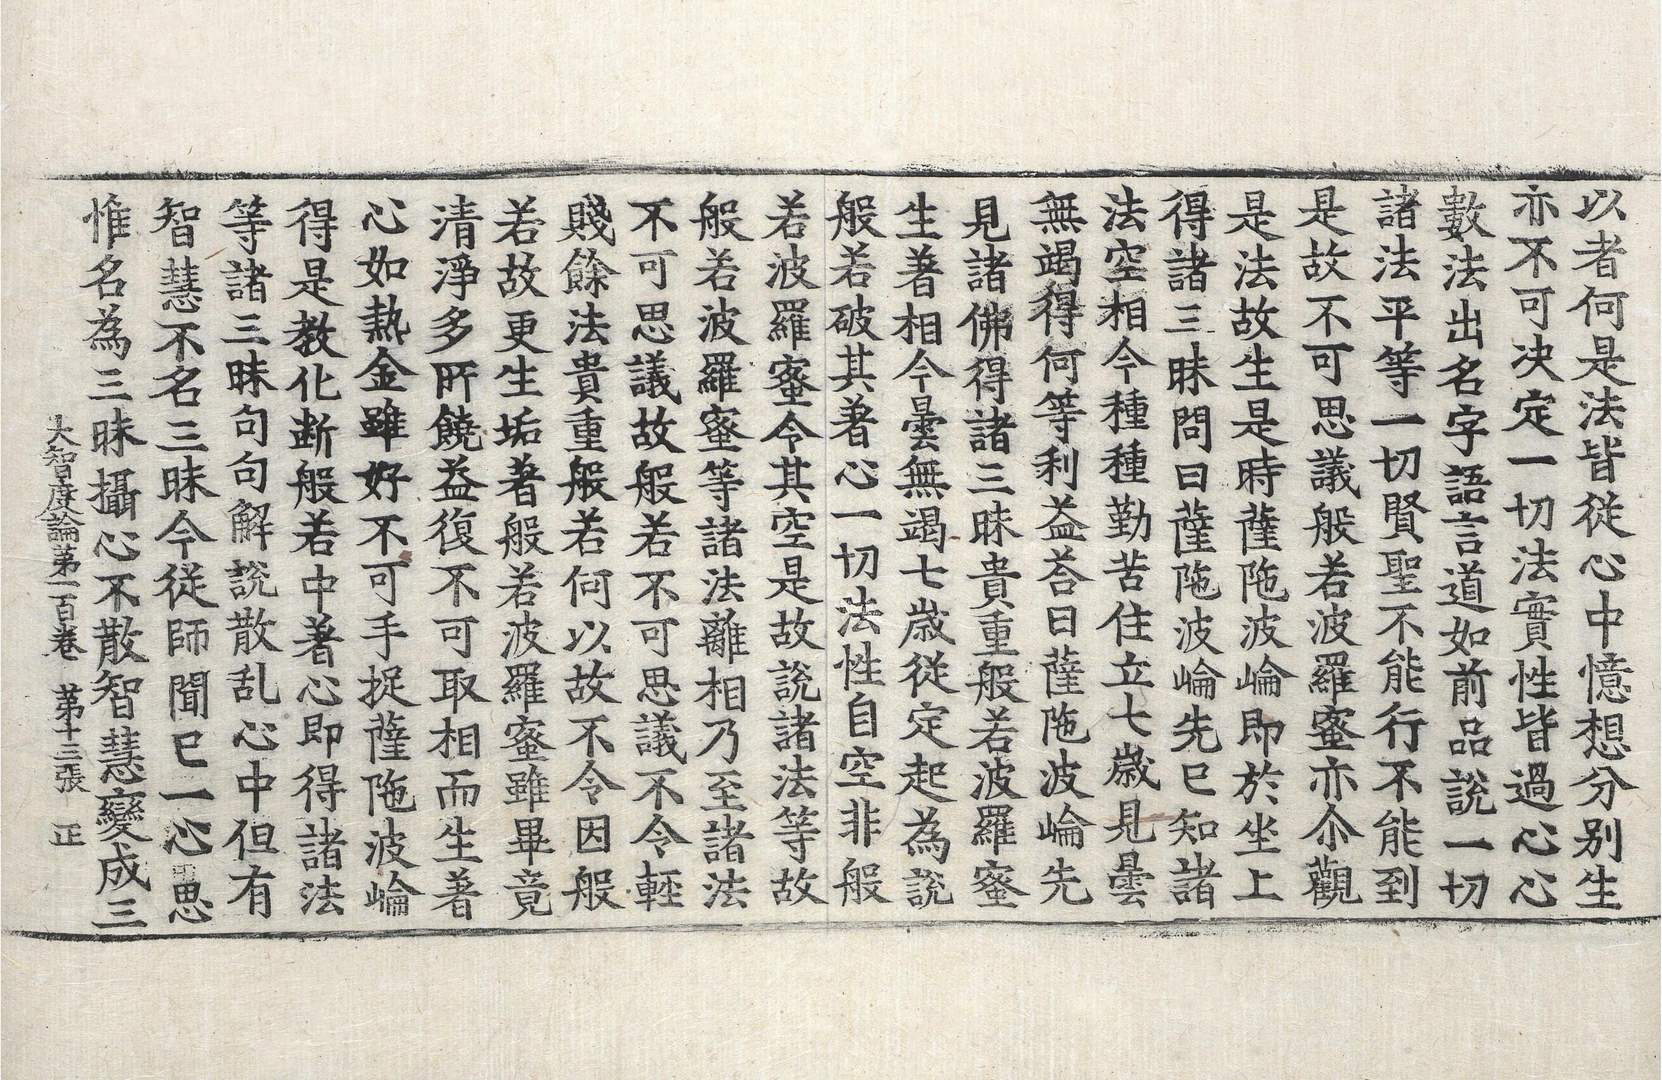 以者何是法皆從心中憶想分別生
亦不可决定一切法實性皆過心心
數法出名字語言道如前品說一切
諸法平等一切賢聖不能行不能到
是故不可思議般若波羅蜜亦尒觀
是法故生是時薩陁波崘即於坐上
得諸三昧問曰薩陁波崘先已知諸
法空相今種種勤苦住立七歲見曇
無竭得何等利益荅曰薩陁波崘先
見諸佛得諸三昧貴重般若波羅蜜
生著相今曇無竭七歲從定起為說
般若破其著心一切法性自空非般
若波羅蜜令其空是故說諸法等故
般若波羅蜜等諸法離相乃至諸法
不可思議故般若不可思議不令輕
賤餘法貴重般若何以故不令因般
若故更生垢著般若波羅蜜雖畢竟
清淨多所饒益復不可取相而生著
心如熱金雖好不可手捉薩陁波崘
得是教化断般若中著心即得諸法
等諸三昧句句解說散乱心中但有
智慧不名三昧今従師聞已一心思
惟名為三昧攝心不散智慧變成三
大智度論第一百卷 第十三張 正